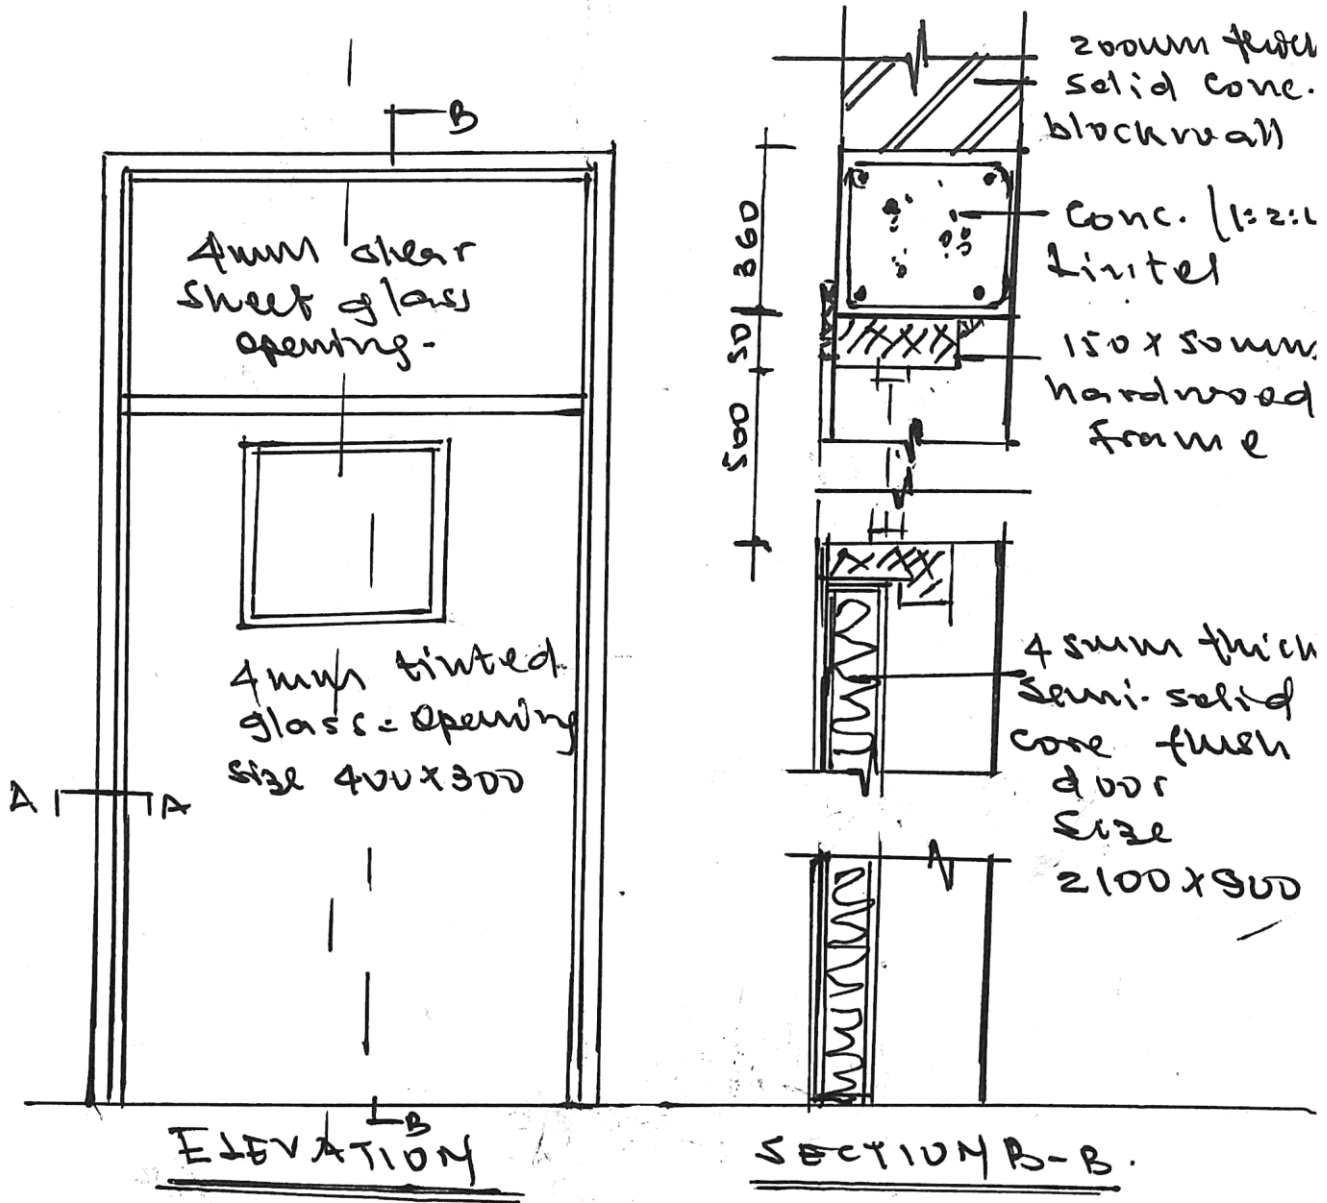 B
4mm clear
sheet glass
opening-
4mm tinted
glass - opening
size 400x300
A
A
B
ELEVATION
200mm thick
solid conc.
blockwall
360
Conc. (1:2:
Lintel
50
150 x 50mm
hardwood
frame
500
45mm thick
semi-solid
core flush
door
size
2100 x 900
SECTION B-B.